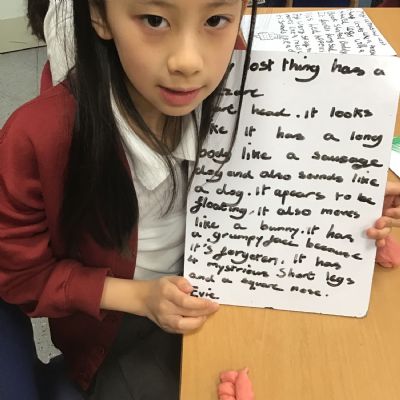 lost thing has a
head. it looks
it has a long
body like a sausage
dog and also sounds like
a dog. it apears to be
floating, it also moves
like a bunny. it has
a grumpy face because
it's forgoten. it has
4 mystrious short legs
and a square nose.
Evie